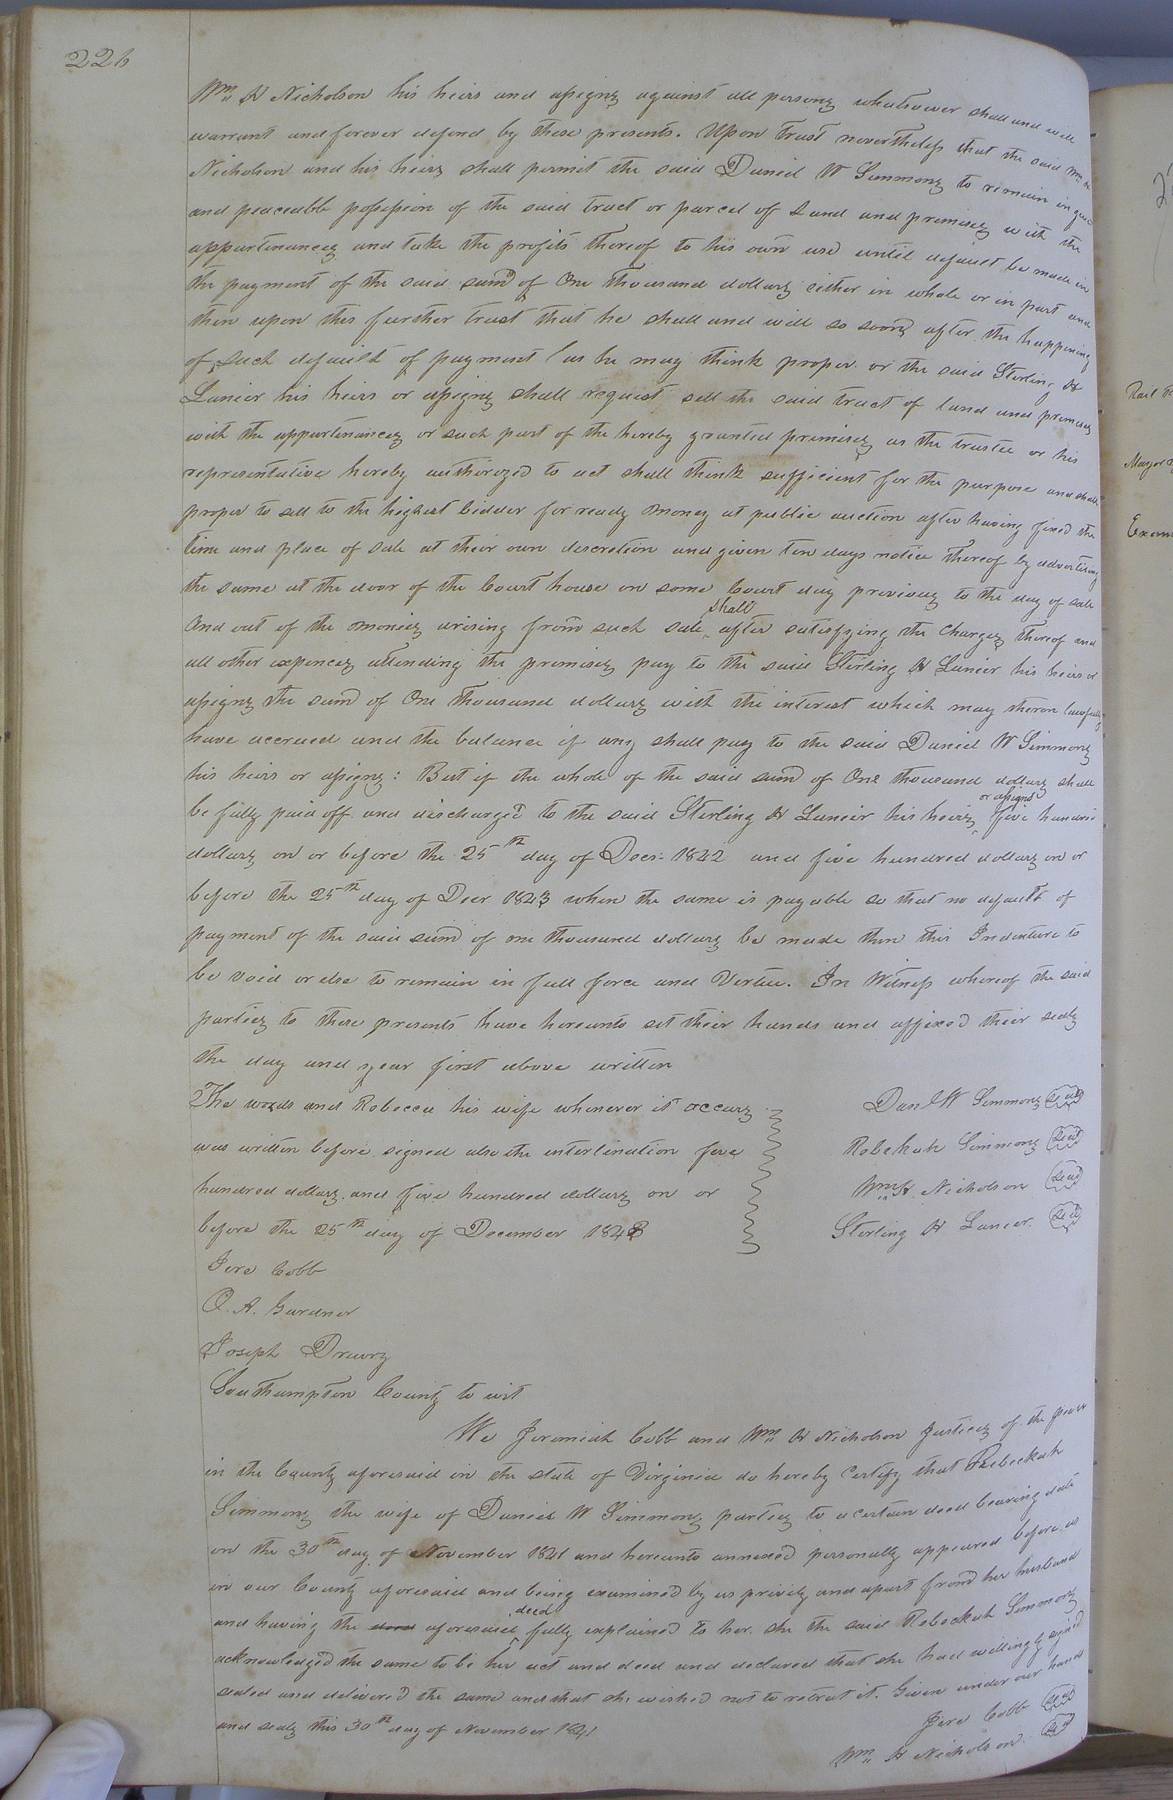 226
Wm H Nicholson his heirs and assigns against all persons whatsoever shall and will
warrant and forever defend by these presents. Upon trust nevertheless that the said Wm H
Nicholson and his heirs shall permit the said Daniel W Simmons to remain in quiet
and peaceable possession of the said tract or parcel of Land and premises with the
appurtenances and take the profits thereof to his own use until default be made in
the payment of the said sum of One thousand dollars either in whole or in part and
then upon this further trust that he shall and will so soon after the happening
of such default of payment as he may think proper or the said Sterling H
Lanier his heirs or assigns shall request sell the said tract of land and premises
with the appurtenances or such part of the hereby granted premises as the trustee or his
representative hereby authorized to act shall think sufficient for the purpose and shall
proper to sell to the highest bidder for ready money at public auction after having fixed the
time and place of sale at their own discretion and given ten days notice thereof by advertising
the same at the door of the Court house on some Court day previous to the day of sale
And out of the monies arising from such sale shall after satisfying the Charges thereof and
all other expences attending the premises pay to the said Sterling H Lanier his heirs or
assigns the sum of One thousand dollars with the interest which may theron lawfully
have accrued and the balance if any shall pay to the said Daniel W Simmons
his heirs or assigns: But if the whole of the said sum of One thousand dollars shall
be fully paid off and discharged to the said Sterling H Lanier his heirs or assigns five hundred
dollars on or before the 25th day of Decr 1842 and five hundred dollars on or
before the 25th day of Decr 1843 when the same is payable so that no default of
payment of the said sum of one thousand dollars be made then this Indenture to
be void or else to remain in full force and Vertue. In Witness whereof the said
parties to these presents have hereunto set their hands and affixed their seals
the day and year first above written
The words and Rebecca his wife whenever it occurs Danl W Simmons Seal
was written before signed also the interlination five Rebekah Simmons Seal
hundred dollars and five hundred dollars on or Wm H Nicholson Seal
before the 25th day of December 1843 Sterling H Lanier Seal
Jere Cobb
O. A. Gardner
Joseph Drewry
Southampton County to wit
We Jeremiah Cobb and Wm H Nicholson Justices of the peace
in the County aforesaid in the state of Virginia do hereby Certify that Rebeckah
Simmons the wife of Daniel W Simmons parties to a certain deed bearing date
on the 30th day of November 1841 and hereunto annexed personally appeared before us
in our County aforesaid and being examined by us privily and apart from her husband
and having the deed aforesaid fully explained to her she the said Rebeckah Simmons
acknowledged the same to be her act and deed and declared that she had willingly signed
sealed and delivered the same and that she wished not to retract it. Given under our hands
and seals this 30th day of November 1841
Jere Cobb Seal
Wm H Nicholson Seal